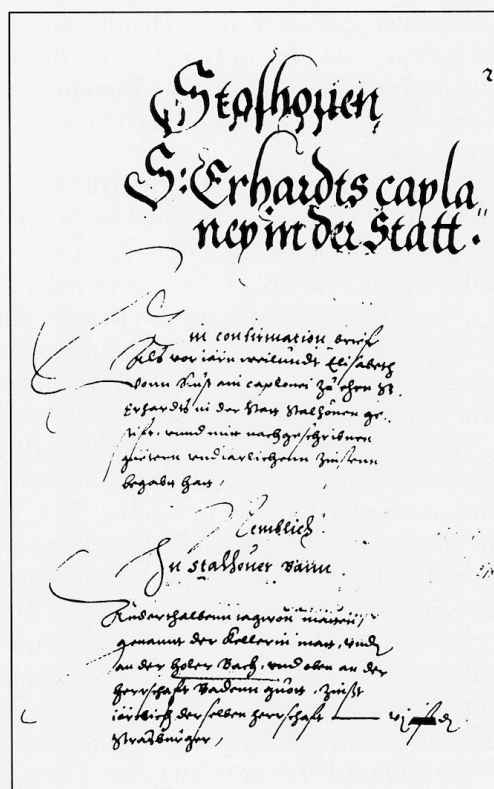 2
Stolhouen
S: Erhardts capla
ney in der Statt.
Ein confirmation brief
als vor iarn weilundt Elisabeth
vonn ain caplonei zů ehren St.
Erhardts in der Statt Stalhouen ge-
stifft, vnnd mit nachgeschribnen
güetern vnd iarlichenn Zinsenn
begabt hatt,
Nemblich
In Stalhouer Bann
tagwon matten,
genannt der Kellerin matt,
an der Holer Bach, vnd oben an der
herrschafft Badenn guott, Zinst
iärlich der selben herrschafft
Strasburger,